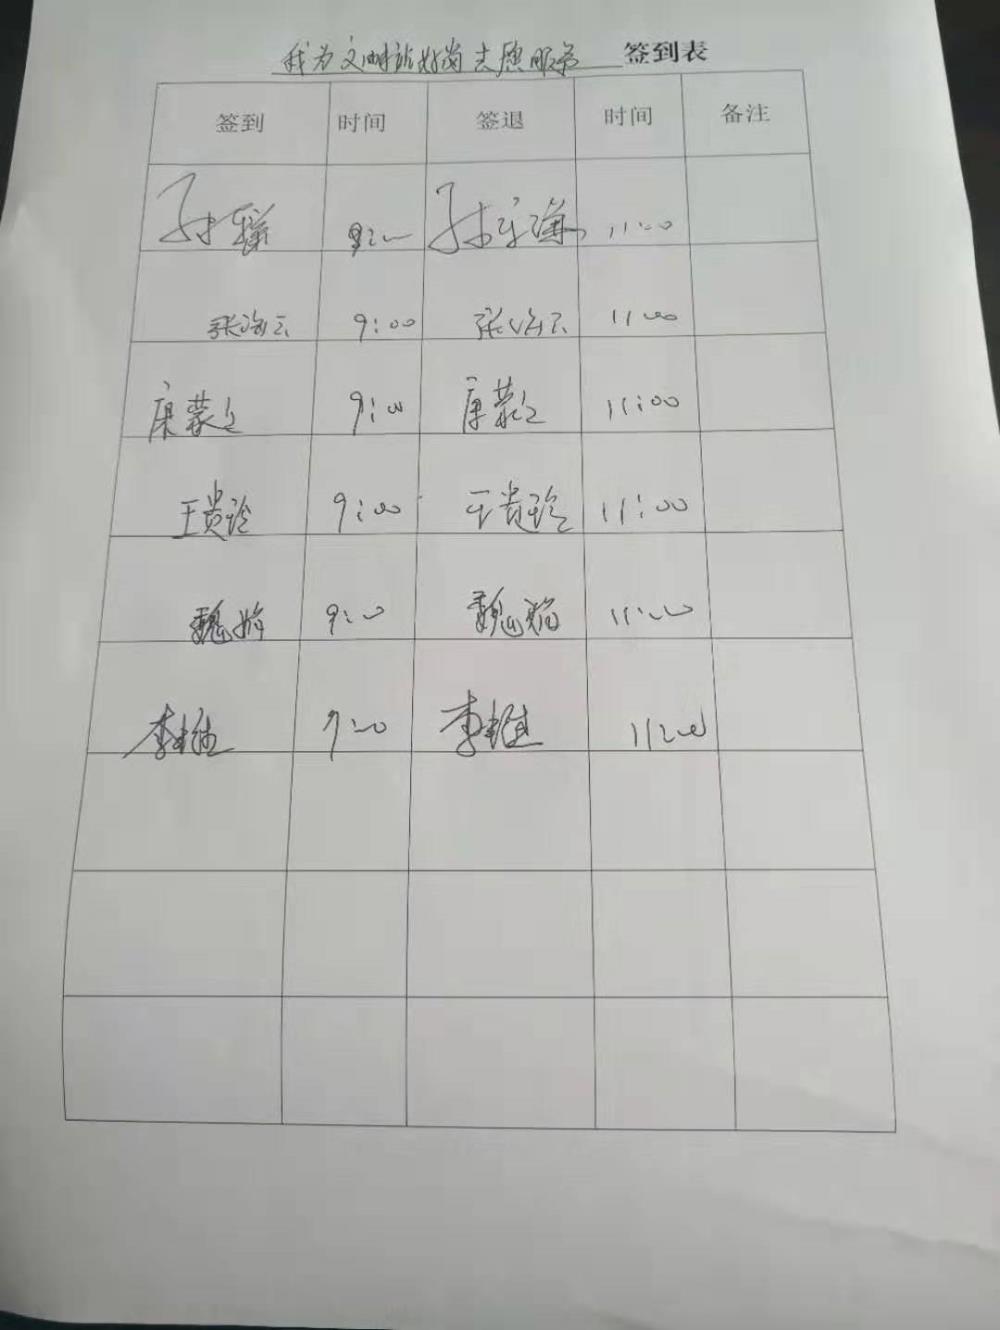 我为文明站好岗志愿服务 签到表
签到 时间 签退 时间 备注
9:00 11:00
张海云 9:00 张海云 11:00
康蒙 9:00 康蒙 11:00
王贵玲 9:00 王贵玲 11:00
魏 9:00 魏 11:00
李 9:00 李 11:00